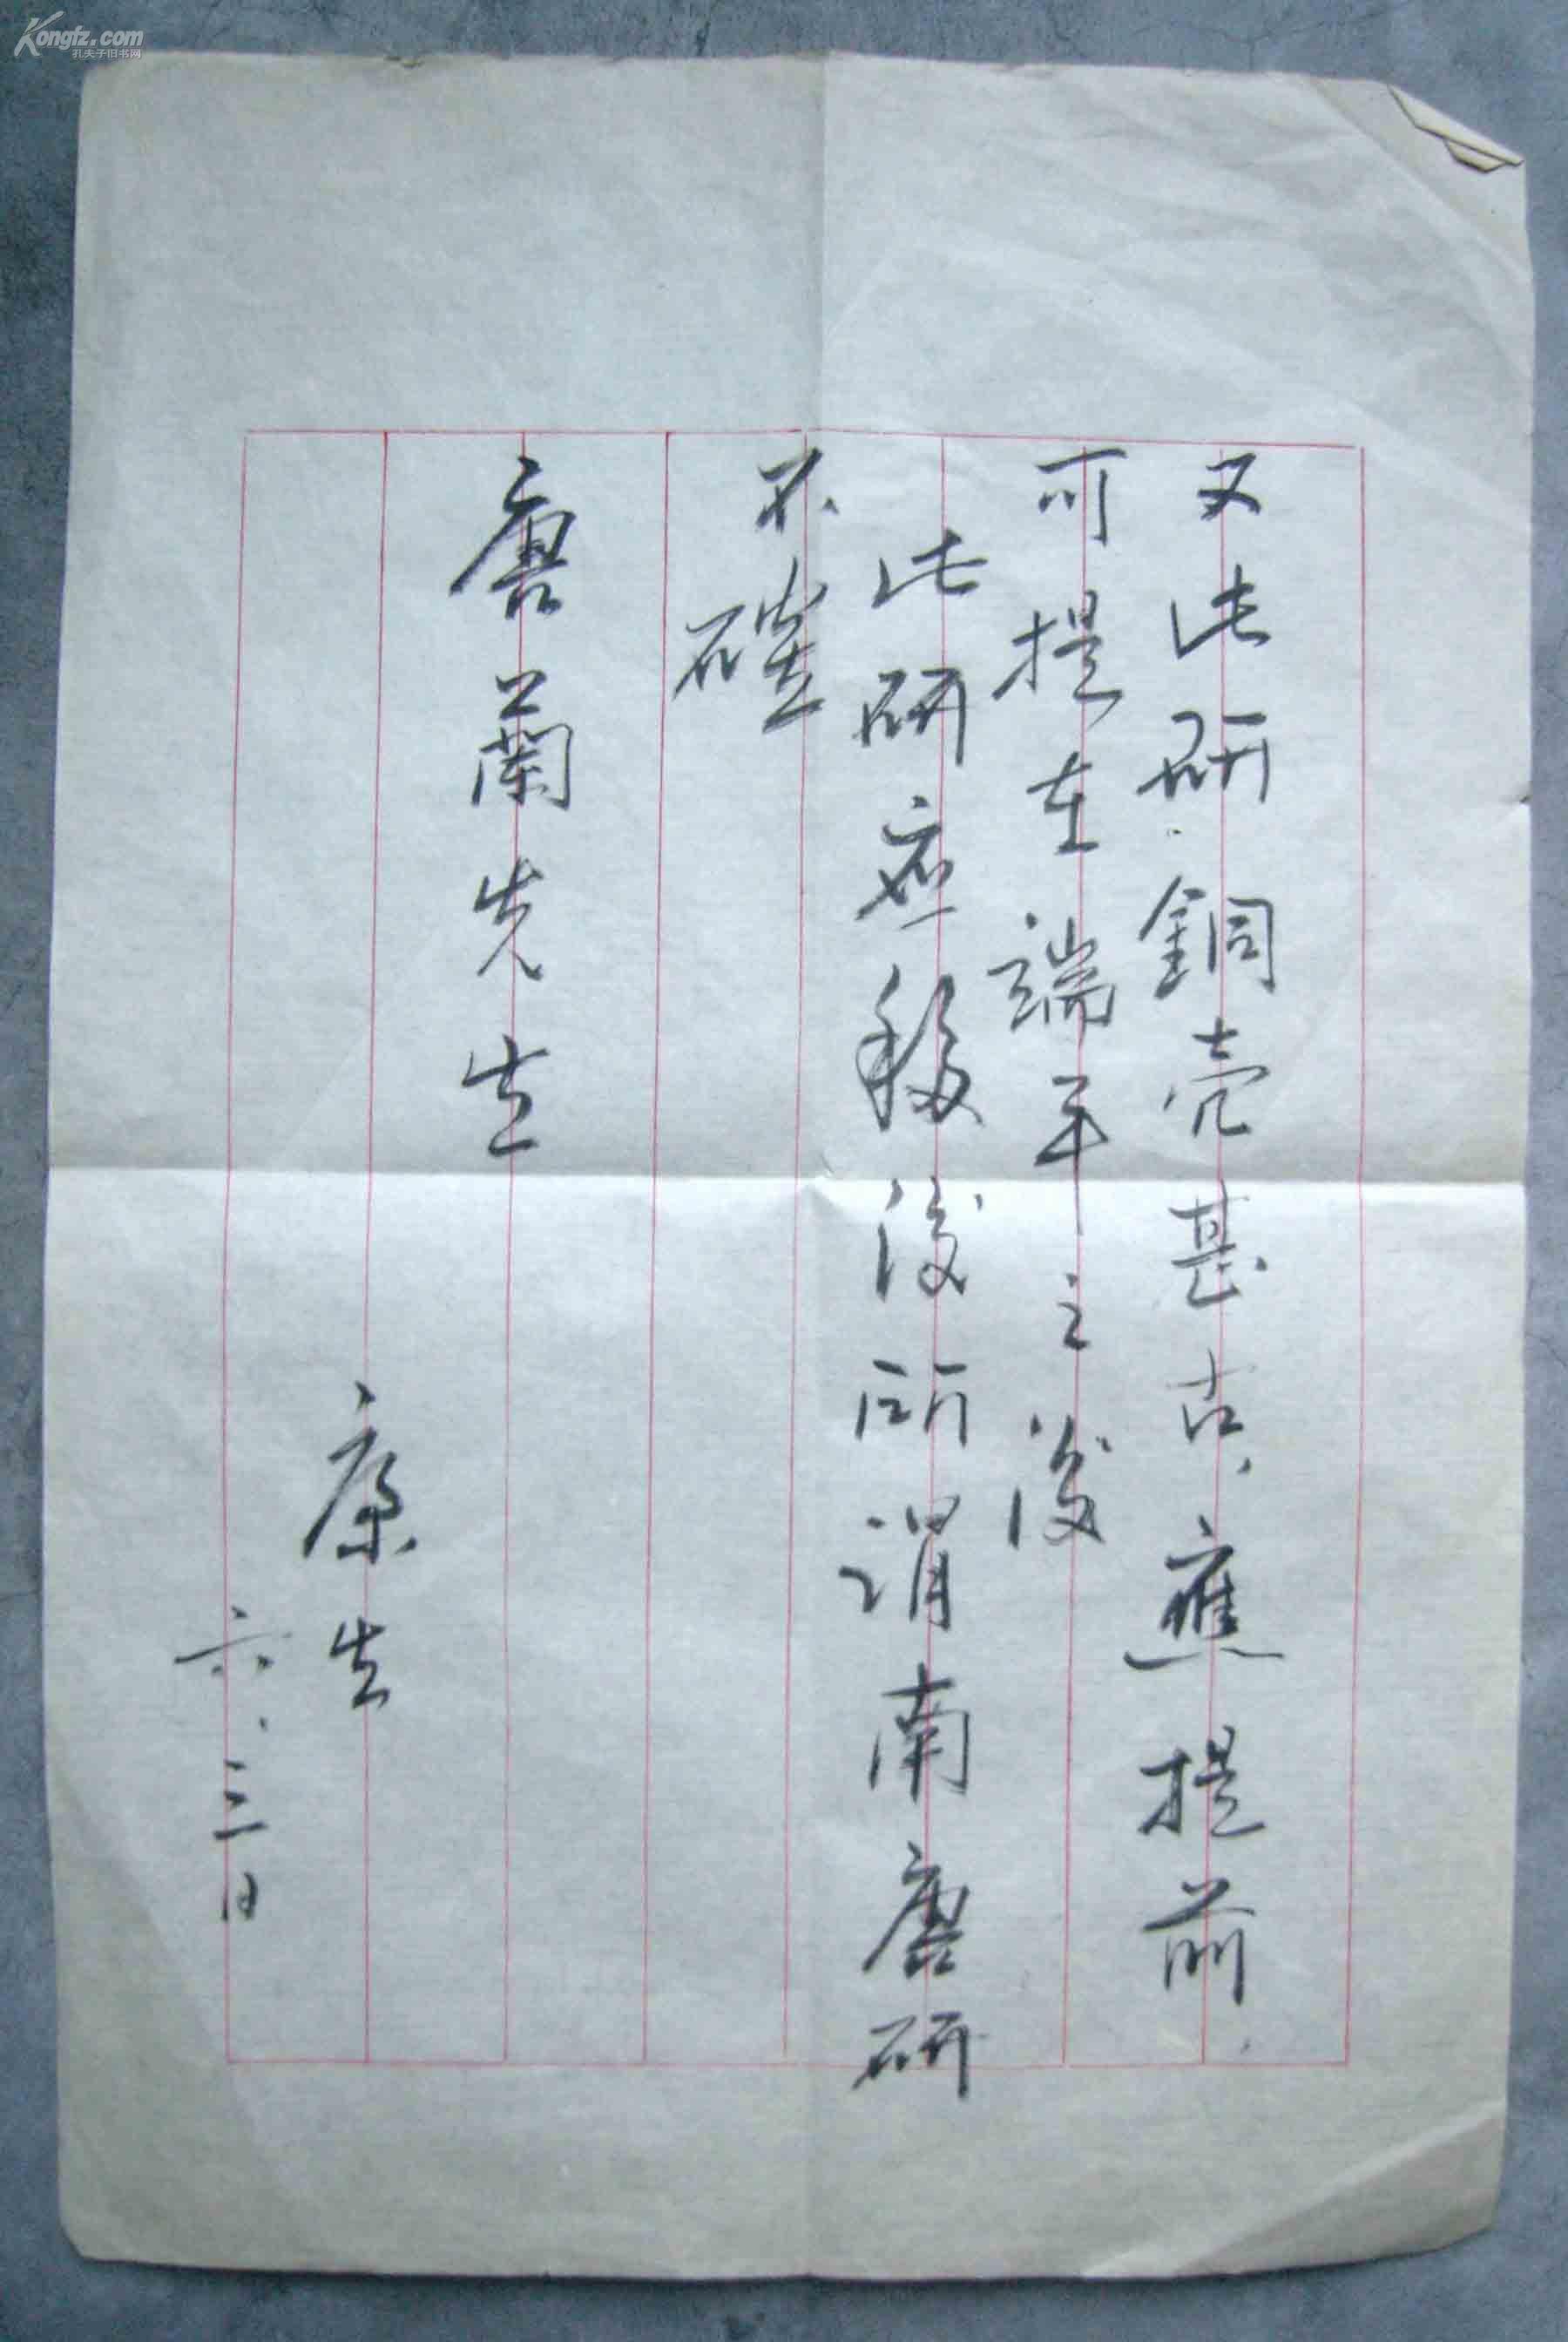 Kongfz.com
孔夫子旧书网
又此研.銅壳甚古,應提前,
可提在端平之後
此研应移後所谓南唐研
不
唐蘭先生
康生
六.三日